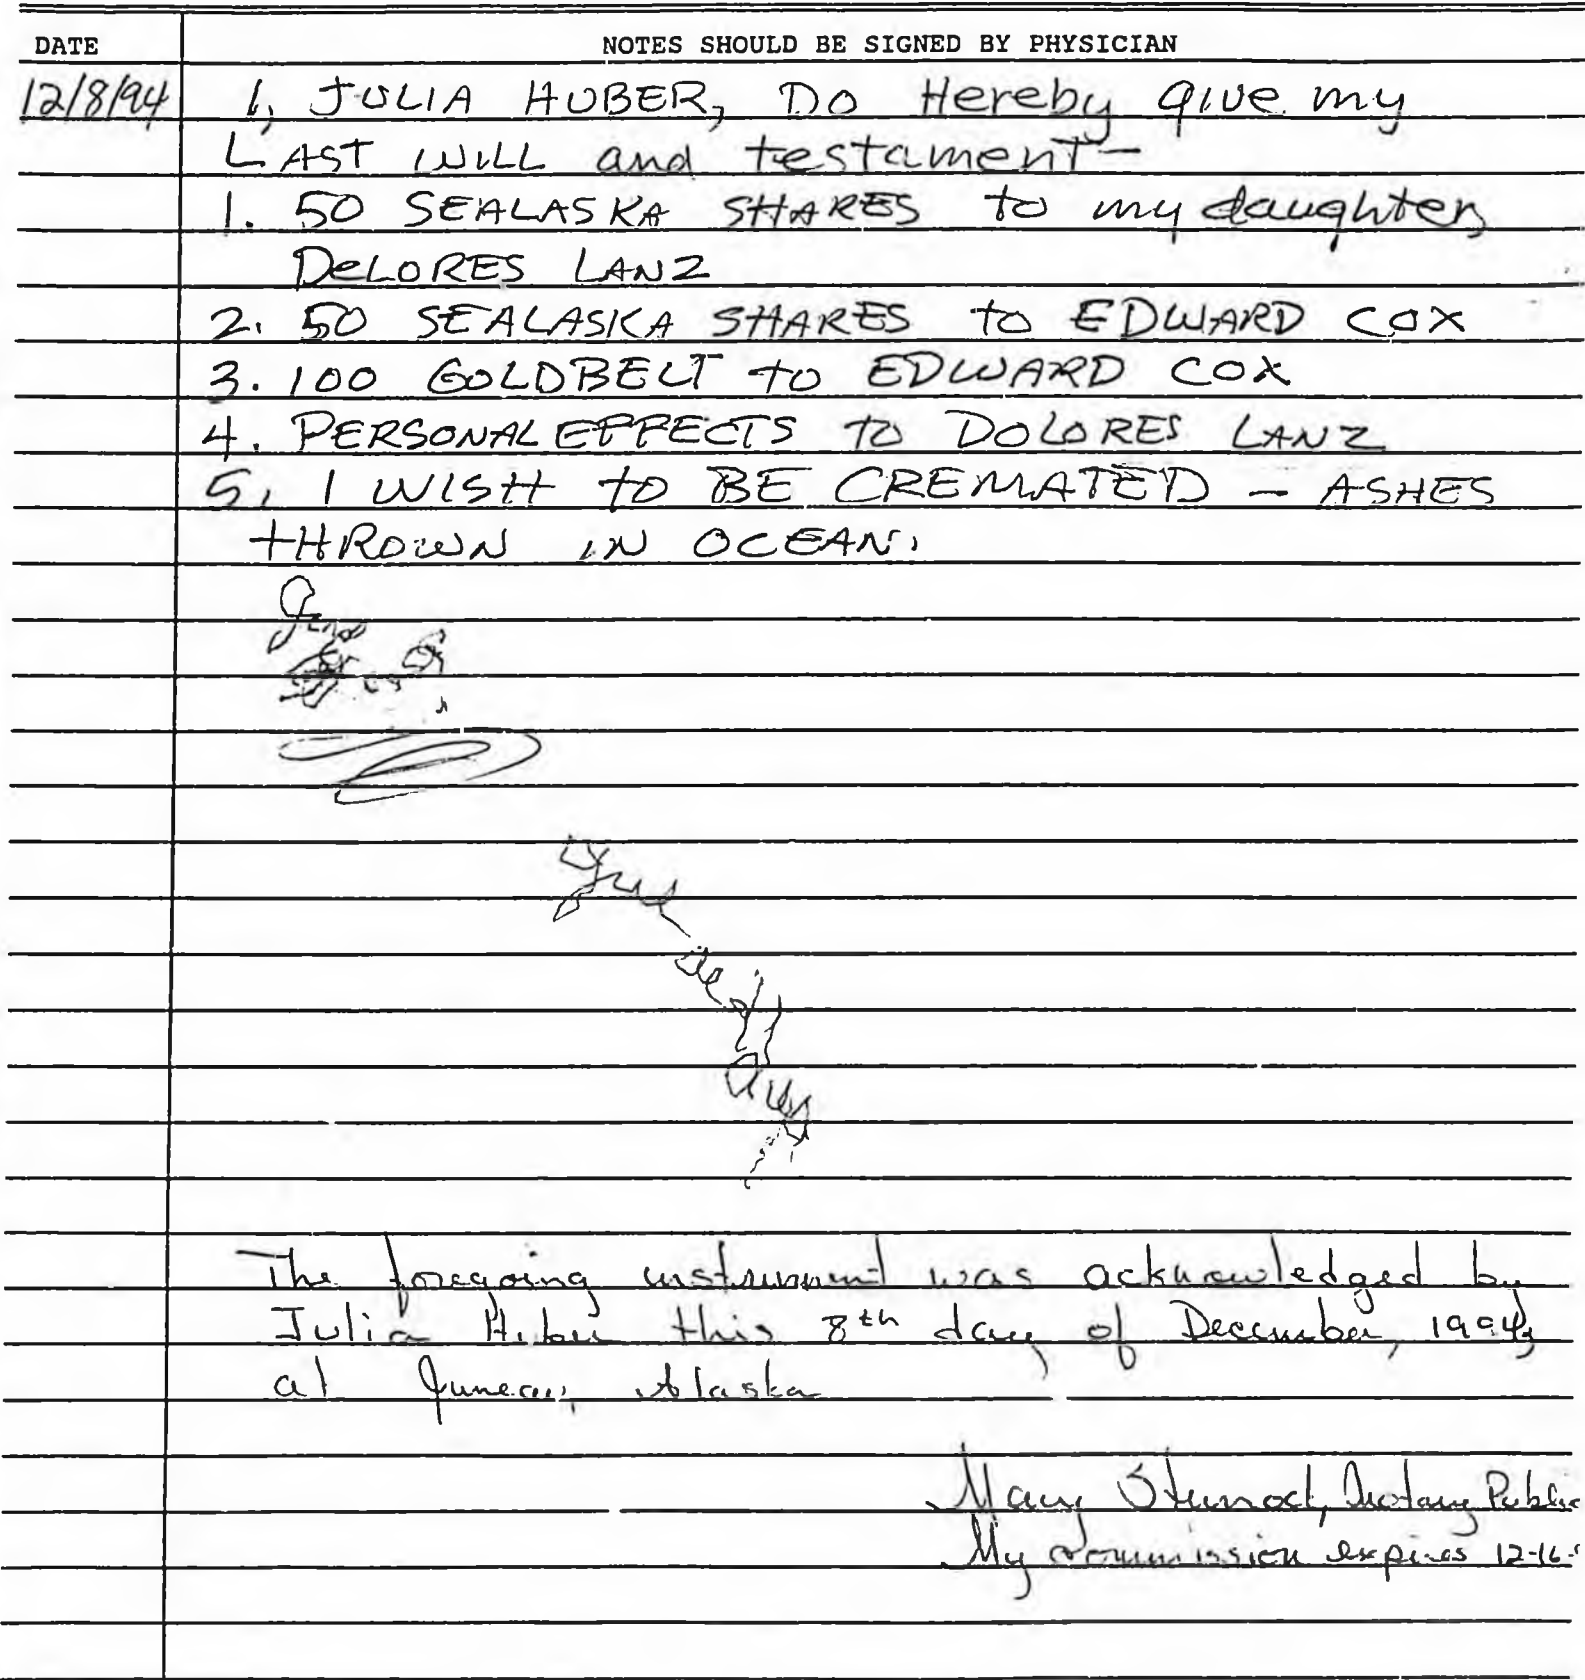 DATE NOTES SHOULD BE SIGNED BY PHYSICIAN
12/8/94 I, JULIA HUBER, DO Hereby give my
LAST WILL and testament-
1. 50 SEALASKA SHARES to my daughter,
DeLORES LANZ
2. 50 SEALASKA SHARES to EDWARD COX
3. 100 GOLDBELT to EDWARD COX
4. PERSONAL EFFECTS to DOLORES LANZ
5. I WISH to BE CREMATED - ASHES
tHROWN IN OCEAN.
The foregoing instrument was acknowledged by
Julia Huber this 8th day of December, 1994,
at Juneau, Alaska
Mary, Notary Public
My commission expires 12-16-